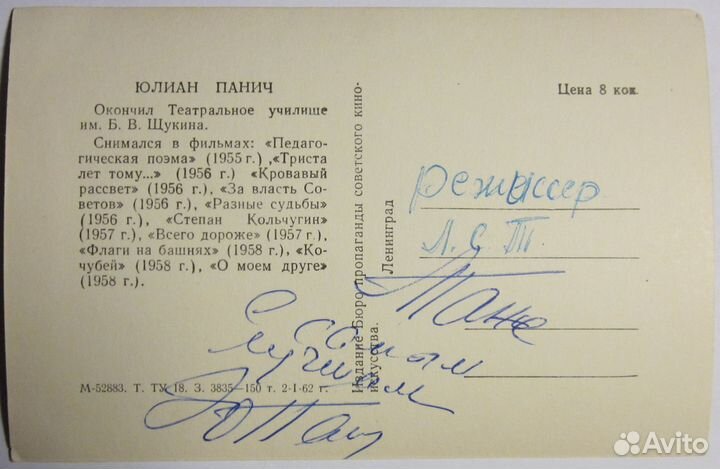 ЮЛИАН ПАНИЧ
Окончил Театральное училище
им. Б. В. Щукина.
Снимался в фильмах: «Педаго-
гическая поэма» (1955 г.) ,«Триста
лет тому...» (1956 г.) «Кровавый
рассвет» (1956 г.), «За власть Со-
ветов» (1956 г.), «Разные судьбы»
(1956 г.), «Степан Кольчугин»
(1957 г.), «Всего дороже» (1957 г.),
«Флаги на башнях» (1958 г.), «Ко-
чубей» (1958 г.), «О моем друге»
(1958 г.).
М-52883. Т. ТУ 18. З. 3835—150 т. 2-I-62 г.
Издание Бюро пропаганды советского кино-
искусства.
Ленинград
Цена 8 коп.
режиссер
Л. С. Т.
Тане
С самым
лучшим
ЮПан
Avito